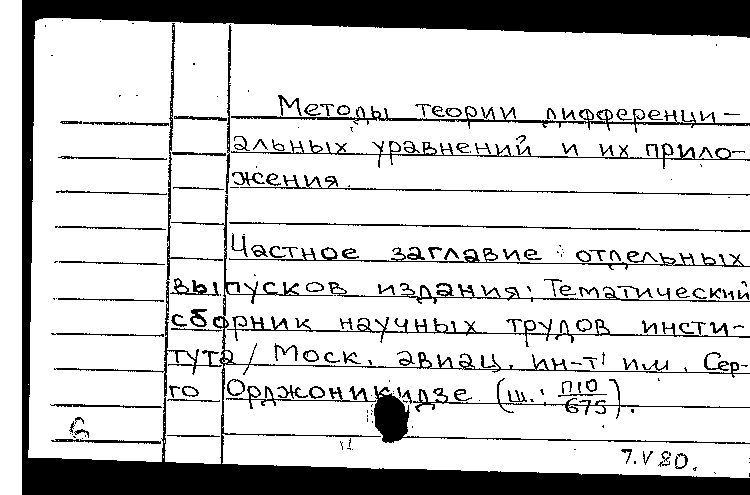 Методы теории дифференци-
альных уравнений и их прило-
жения
Частное заглавие отдельных
выпусков издания: Тематический
сборник научных трудов инсти-
тута / Моск. авиац. ин-т им. Сер-
го Орджоникидзе (ш.: П10/675).
7.V 80.